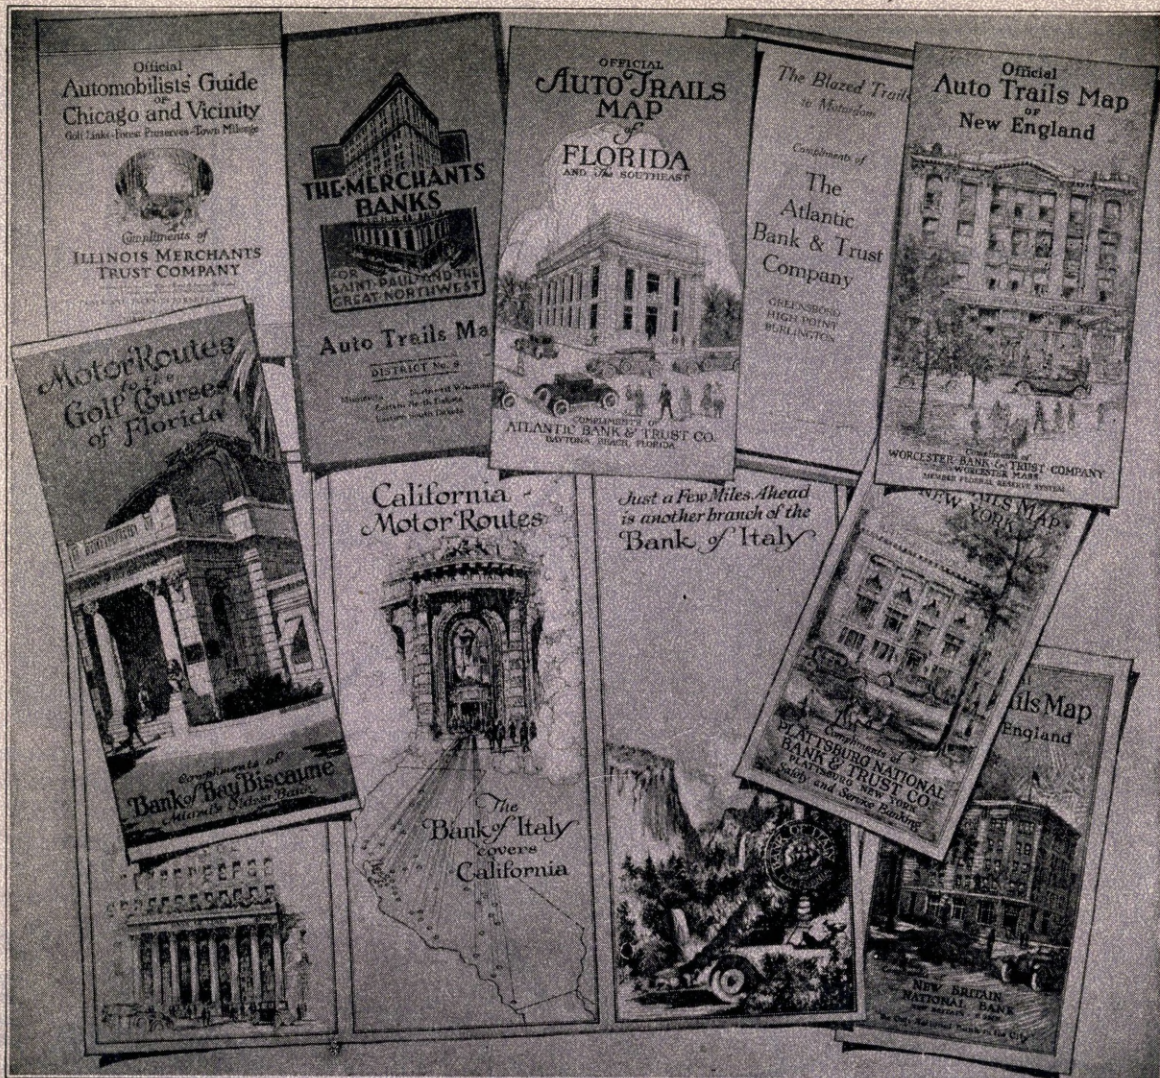 Official
Automobilists' Guide
OF
Chicago and Vicinity
Golf Links-Forest Preserves-Town Mileage
Compliments of
ILLINOIS MERCHANTS
TRUST COMPANY
THE MERCHANTS
BANKS
FOR
SAINT PAUL AND THE
GREAT NORTHWEST
Auto Trails Ma
DISTRICT No.
OFFICIAL
AUTO TRAILS
MAP
of
FLORIDA
AND The SOUTHEAST
COMPLIMENTS OF
ATLANTIC BANK & TRUST CO.
DAYTONA BEACH, FLORIDA
The Blazed Trails
to Motordom
Compliments of
The
Atlantic
Bank & Trust
Company
GREENSBORO
HIGH POINT
BURLINGTON
Official
Auto Trails Map
OF
New England
Compliments of
WORCESTER BANK & TRUST COMPANY
WORCESTER, MASS.
MEMBER FEDERAL RESERVE SYSTEM
Motor Routes
to the
Golf Courses
of Florida
Compliments of
Bank of Bay Biscayne
Miami's Oldest Bank
California
Motor Routes
The
Bank of Italy
covers
California
Just a Few Miles Ahead
is another branch of the
Bank of Italy
BANK OF ITALY
ILS MAP
NEW YORK
Compliments of
PLATTSBURG NATIONAL
BANK & TRUST CO.
PLATTSBURG, NEW YORK
Safety and Service Banking
ils Map
England
NEW BRITAIN
NATIONAL BANK